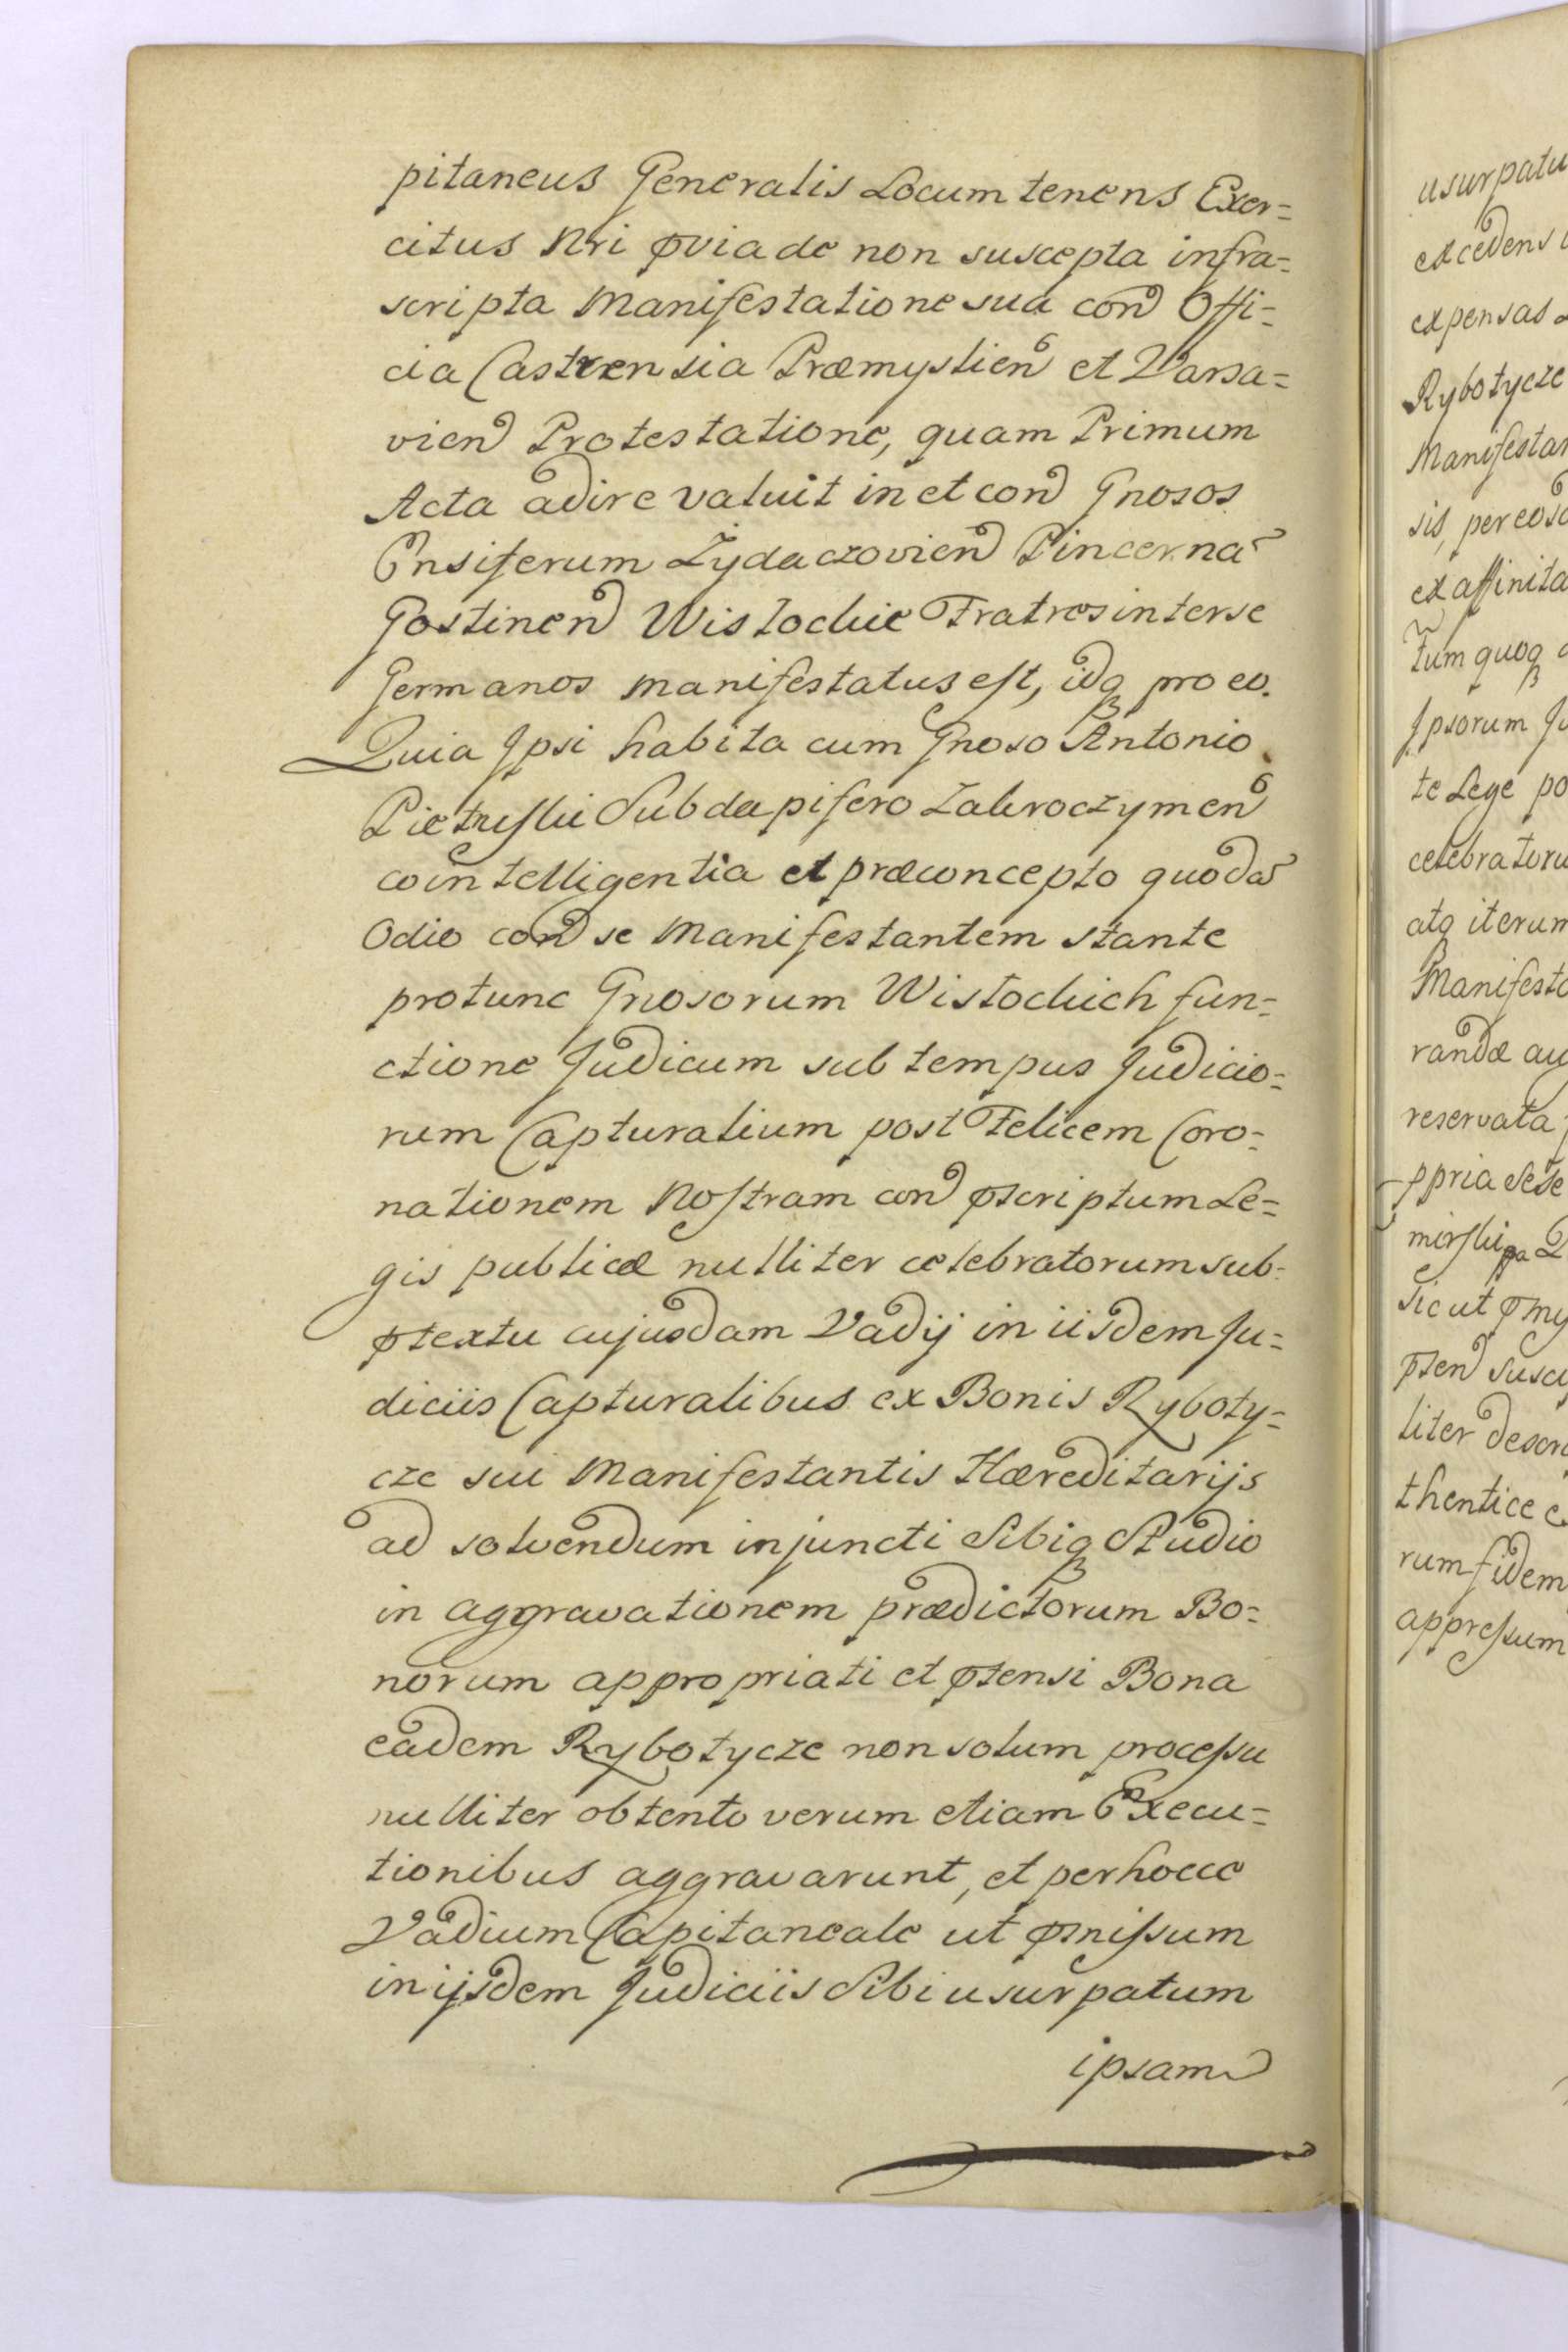 pitaneus Generalis Locum tenens Exer=
citus Nri pviade non suscepta infra=
scripta Manifestatione sua con Offi=
cia Castrensia Præmyslien et Varsa=
vien Protestatione, quam Primum
Acta adire valuit in et con Gnosos
Ensiferum Zydaczovien Pincerna
Gostinen Wisłockie Fratres inter se
Germanos manifestatus est, idq pro eo.
Quia Ipsi habita cum Gnoso Antonio
Pietruski Subdapifero Zakroczymen
cointelligentia et præconcepto quoda
Odio con se Manifestantem stante
protunc Gnosorum Wisłockich fun=
ctione Judicum sub tempus Judicio=
rum Capturalium post Felicem Coro=
nationem Nostram con pscriptum Le=
gis publicæ nulliter celebratorum sub=
ptextu cujusdam Vadij in iisdem Ju=
diciis Capturalibus ex BonisRyboty=
cze sui Manifestantis Hæreditarijs
ad solvendum injuncti Sibiq Studio
in aggravationem prædictorum Bo=
norum appropriati et ptensi Bona
eadem Rybotycze non solum processu
nulliter obtento verum etiam Execu=
tionibus aggravarunt, et per hocce
Vadium Capitaneale ut pmissum
in ijsdem Judiciis Sibi usurpatum
ipsam
usurpatu
excedens
expensas
Rybotycze
Manifestan
sis, per eosd
ex affinita
tum quoq
Ipsorum Ju
te Lege po
celebratoru
atq iterum
Manifesta
randæ au
reservata
ppria sese
mirski
Sicut pmy
pten susci
liter descr
thentice e
rum fidem
appressum